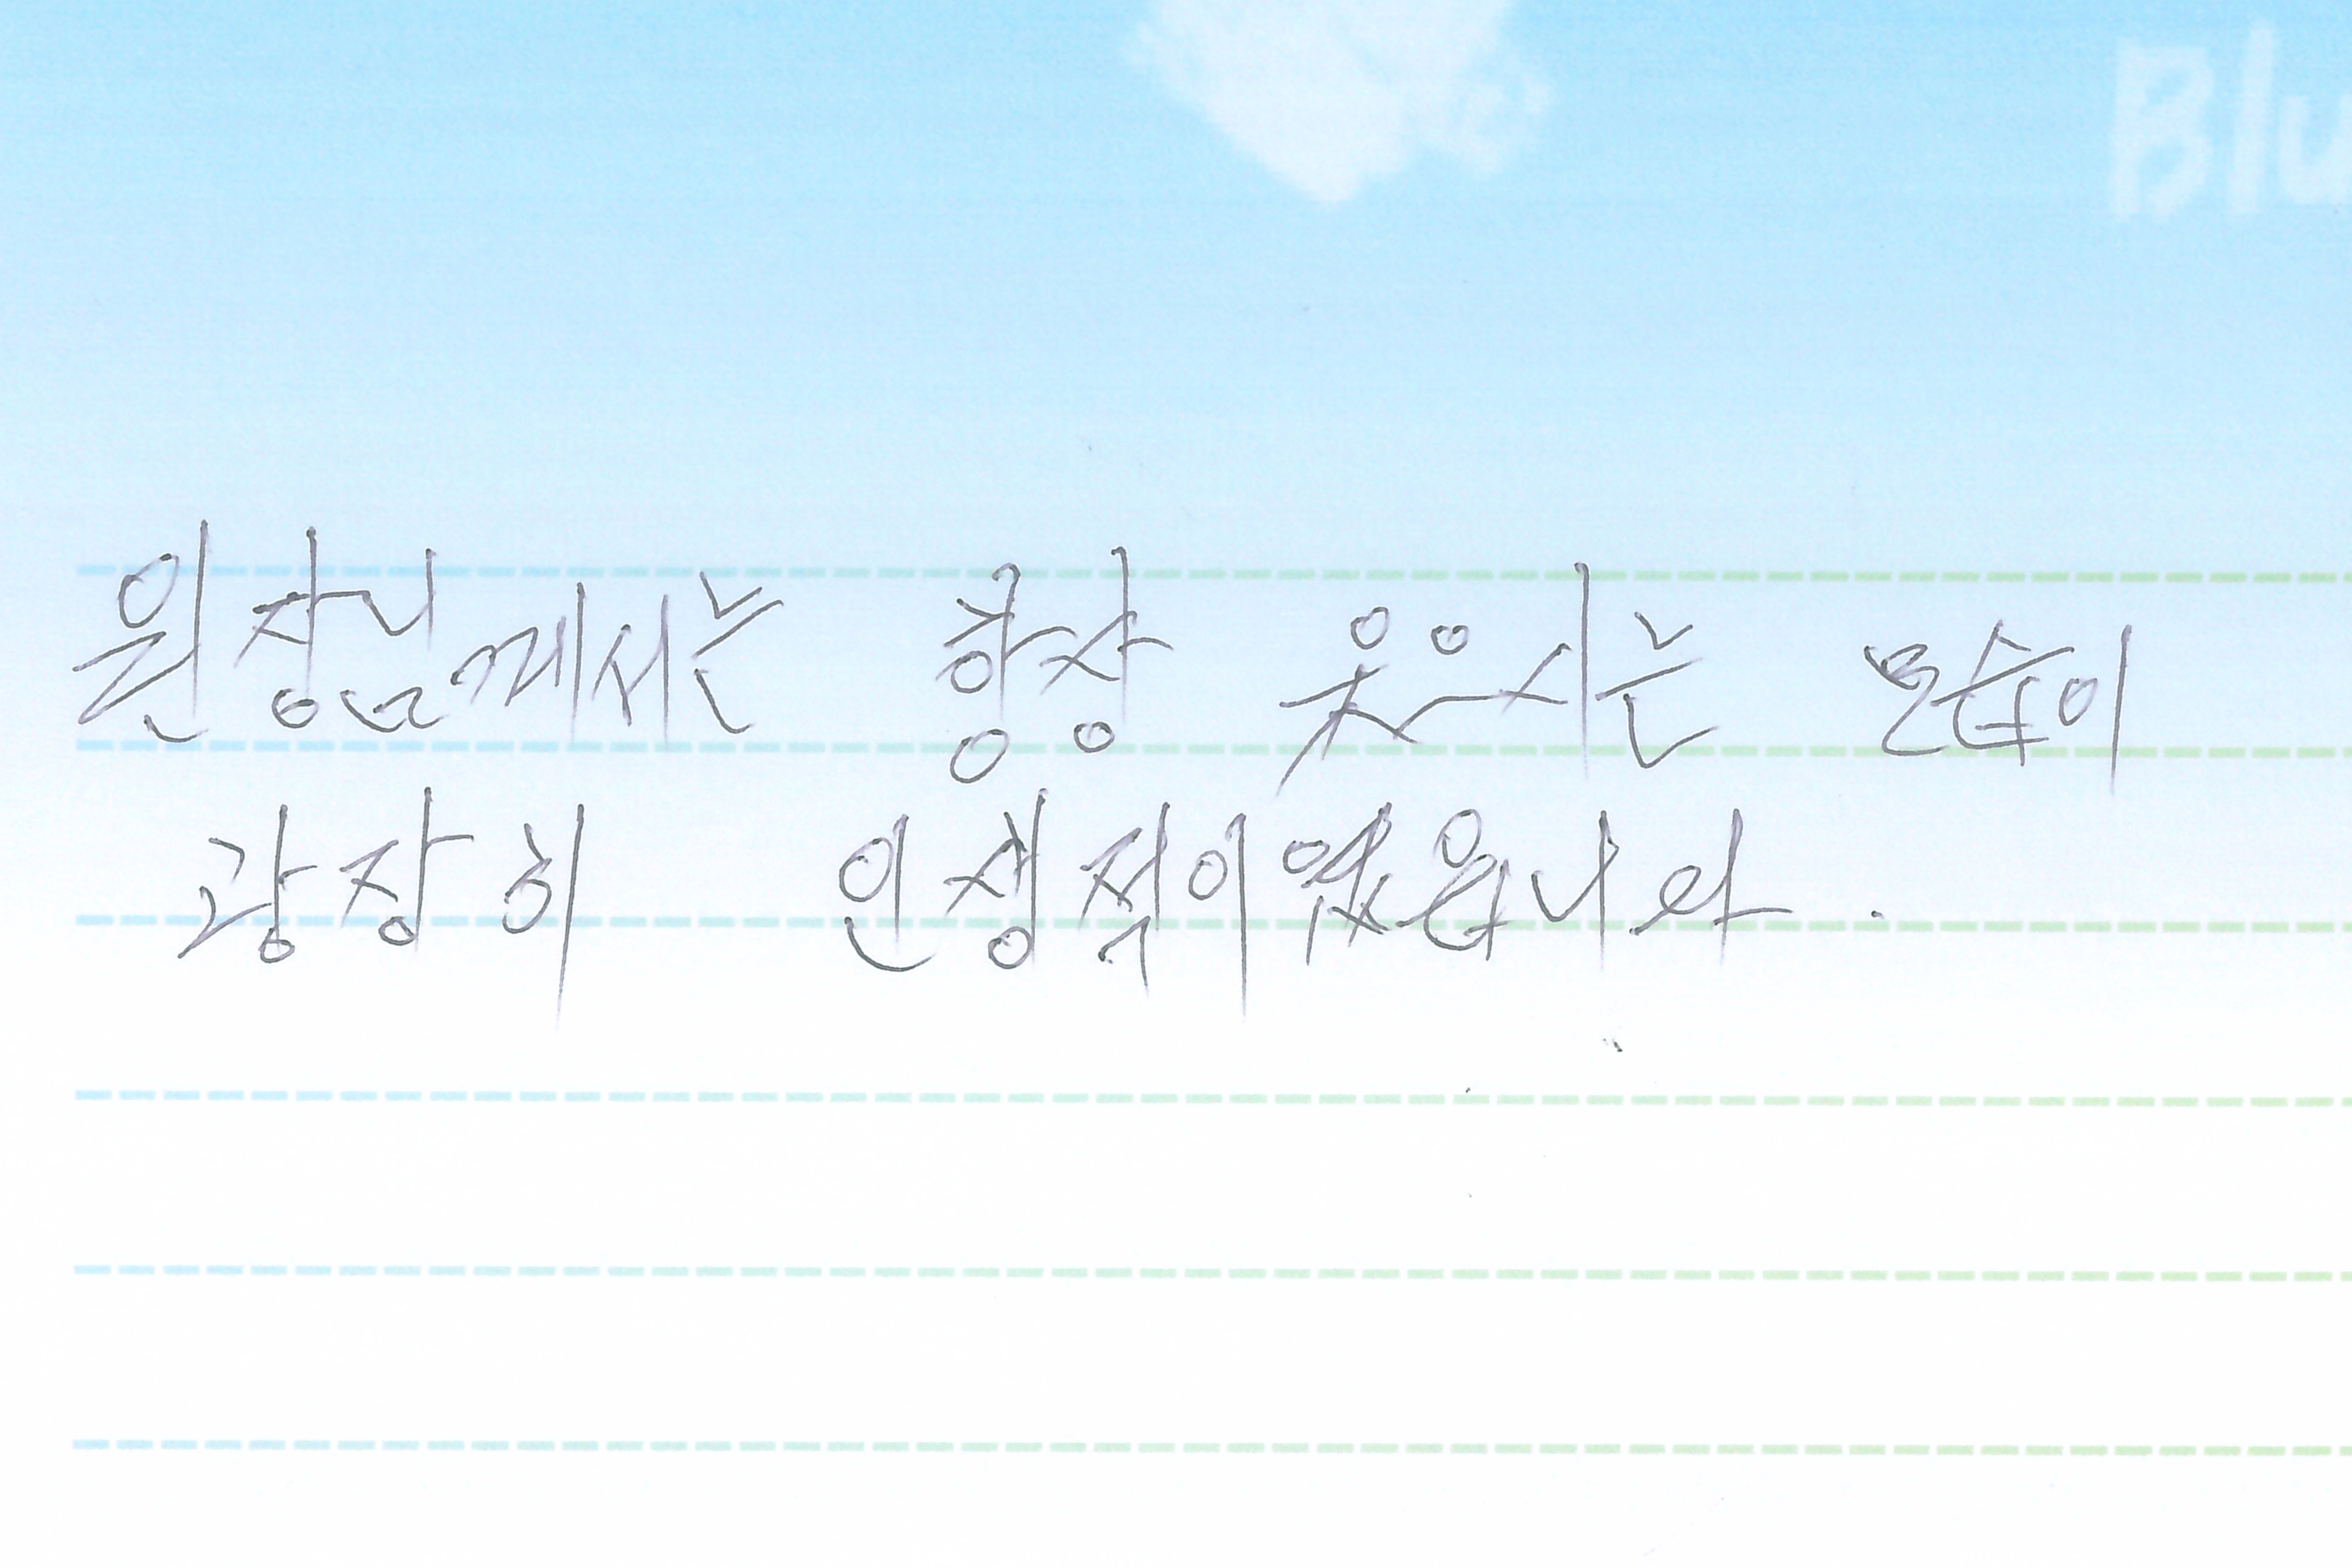 Blu
원장님께서는 항상 웃으시는 모습이
굉장히 인상적이었읍니다.